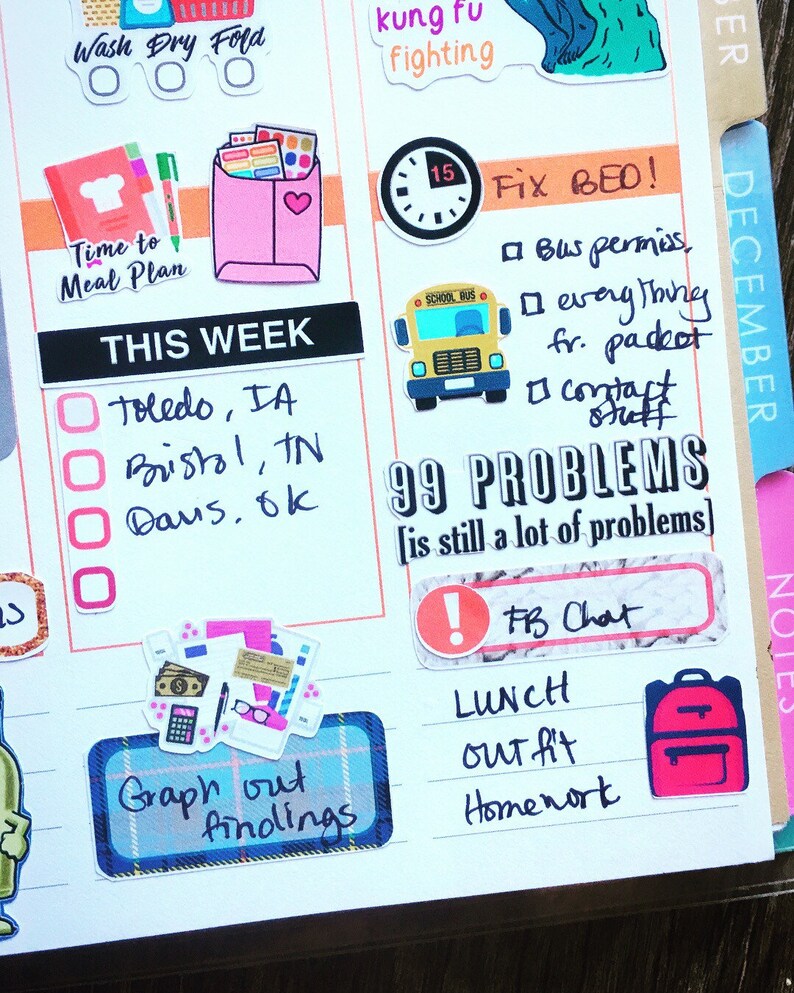 Wash Dry Fold
kung fu
fighting
BER
DECEMBER
NOTES
Time to
Meal Plan
THIS WEEK
Toledo, IA
Bristol, TN
Davis, OK
Graph out
findings
15
FIX BED!
Bus permiss.
SCHOOL BUS
everything
fr. packet
contact
stuff
99 PROBLEMS
[is still a lot of problems]
!
FB Chat
LUNCH
OUTfit
Homework